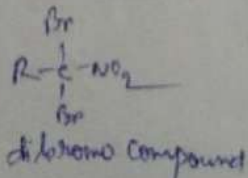 Br
R-C-NO2
Br
dibromo compound